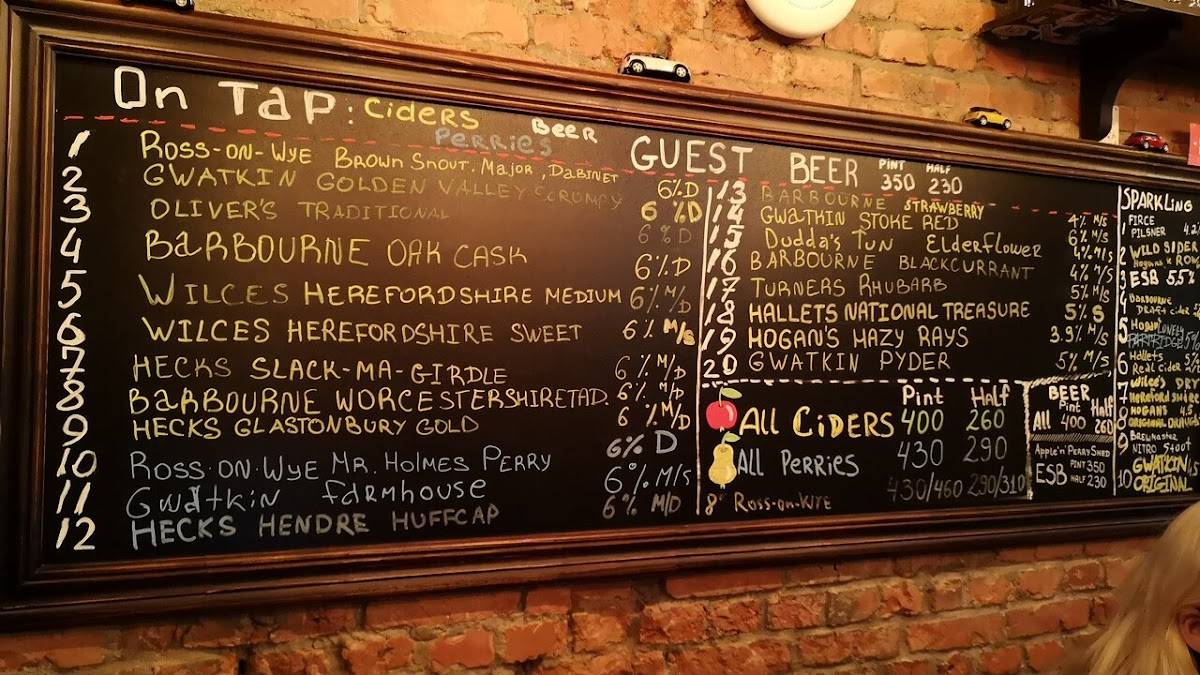 On Tap: Ciders
Perries Beer
1 Ross-on-Wye Brown Snout, Major, Dabinet 6% D
2 Gwatkin Golden Valley Scrumpy 6% D
3 Oliver's Traditional 6% D
4 Barbourne Oak Cask 6% D
5 Wilces Herefordshire Medium 6% M/D
6 Wilces Herefordshire Sweet 6% M/S
7 Hecks Slack-Ma-Girdle 6% M/D
8 Barbourne Worcestershire Tad. 6% M/D
9 Hecks Glastonbury Gold 6% M/D
10 Ross-on-Wye Mr. Holmes Perry 6% D
11 Gwatkin Farmhouse 6% M/S
12 Hecks Hendre Huffcap 6% M/D
GUEST BEER Pint 350 Half 230
13 Barbourne Strawberry 4% M/S
14 Gwatkin Stoke Red 6% M/S
15 Dudda's Tun Elderflower 4% M/S
16 Barbourne Blackcurrant 4% M/S
17 Turners Rhubarb 5% M/S
18 Hallets National Treasure 5% S
19 Hogan's Hazy Rays 3.9% M/S
20 Gwatkin Pyder 5% M/S
Pint Half
All Ciders 400 260
All Perries 430 290
8% Ross-on-Wye 430/460 290/310
BEER
Pint Half
All 400 260
Apple'n'Perry Shed
ESB Pint 350
Half 230
Sparkling
1 Firce
Pilsner 4.2
2 Wild Sider
Hogans
3 ESB 5,5%
4 Barbourne
Draft cider
5 Hogan Lonely
Partridge 5%
6 Hallets
Real Cider
7 Wilce's Dry
Herefordshire
8 Hogans 4.5
Original Draught
9 Brewmaster
Nitro Stout
10 Gwatkin
Original